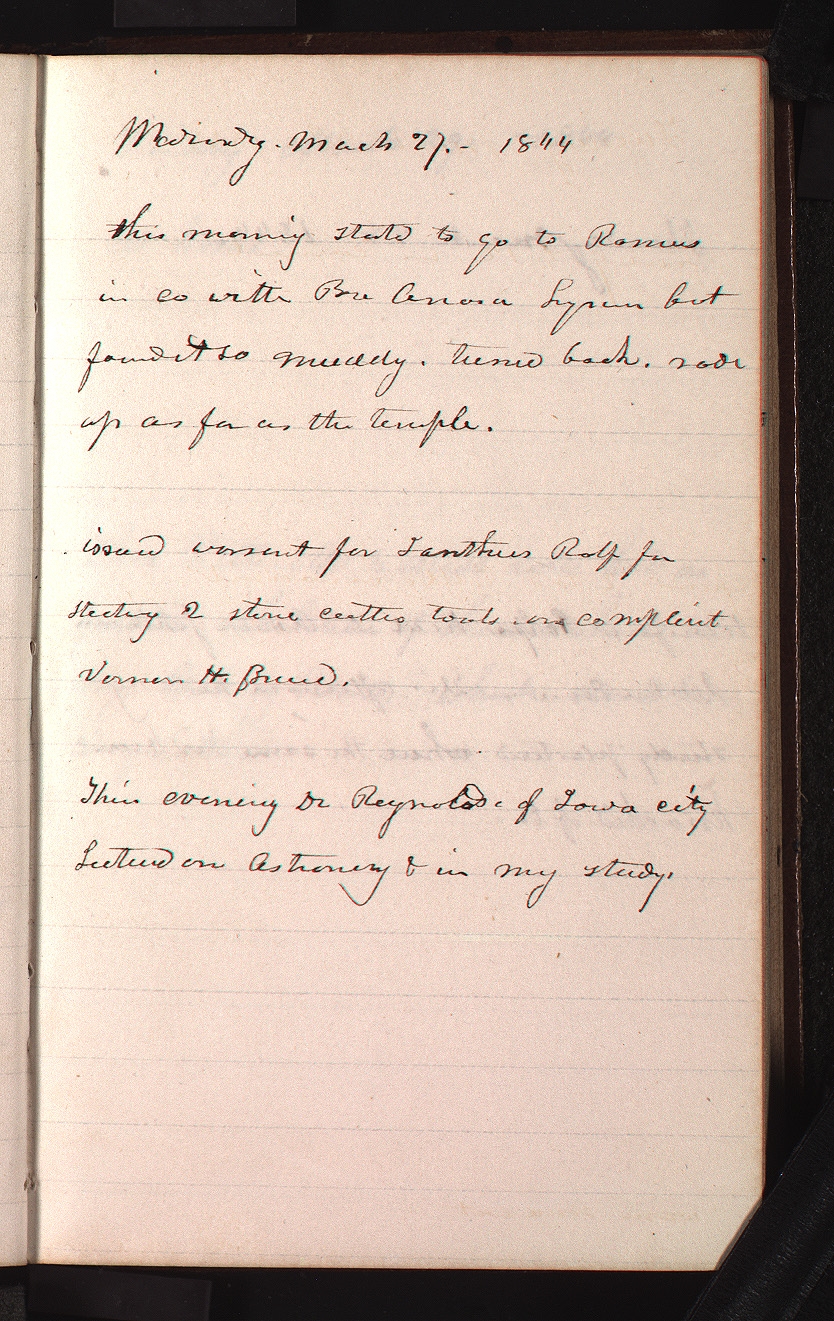 Wednesdy. March 27.- 1844
this morning started to go to Ramus
in co with Bro Amasa Lyman but
found it so muddy. turned back. rode
up as far as the temple.
issued warrant for Ianthus Rolf for
stealing 2 stone cutters tools on complaint
Vernon H. Bruce.
This evening Dr Reynolds of Iowa city
Lectured on Astronomy & in my study.